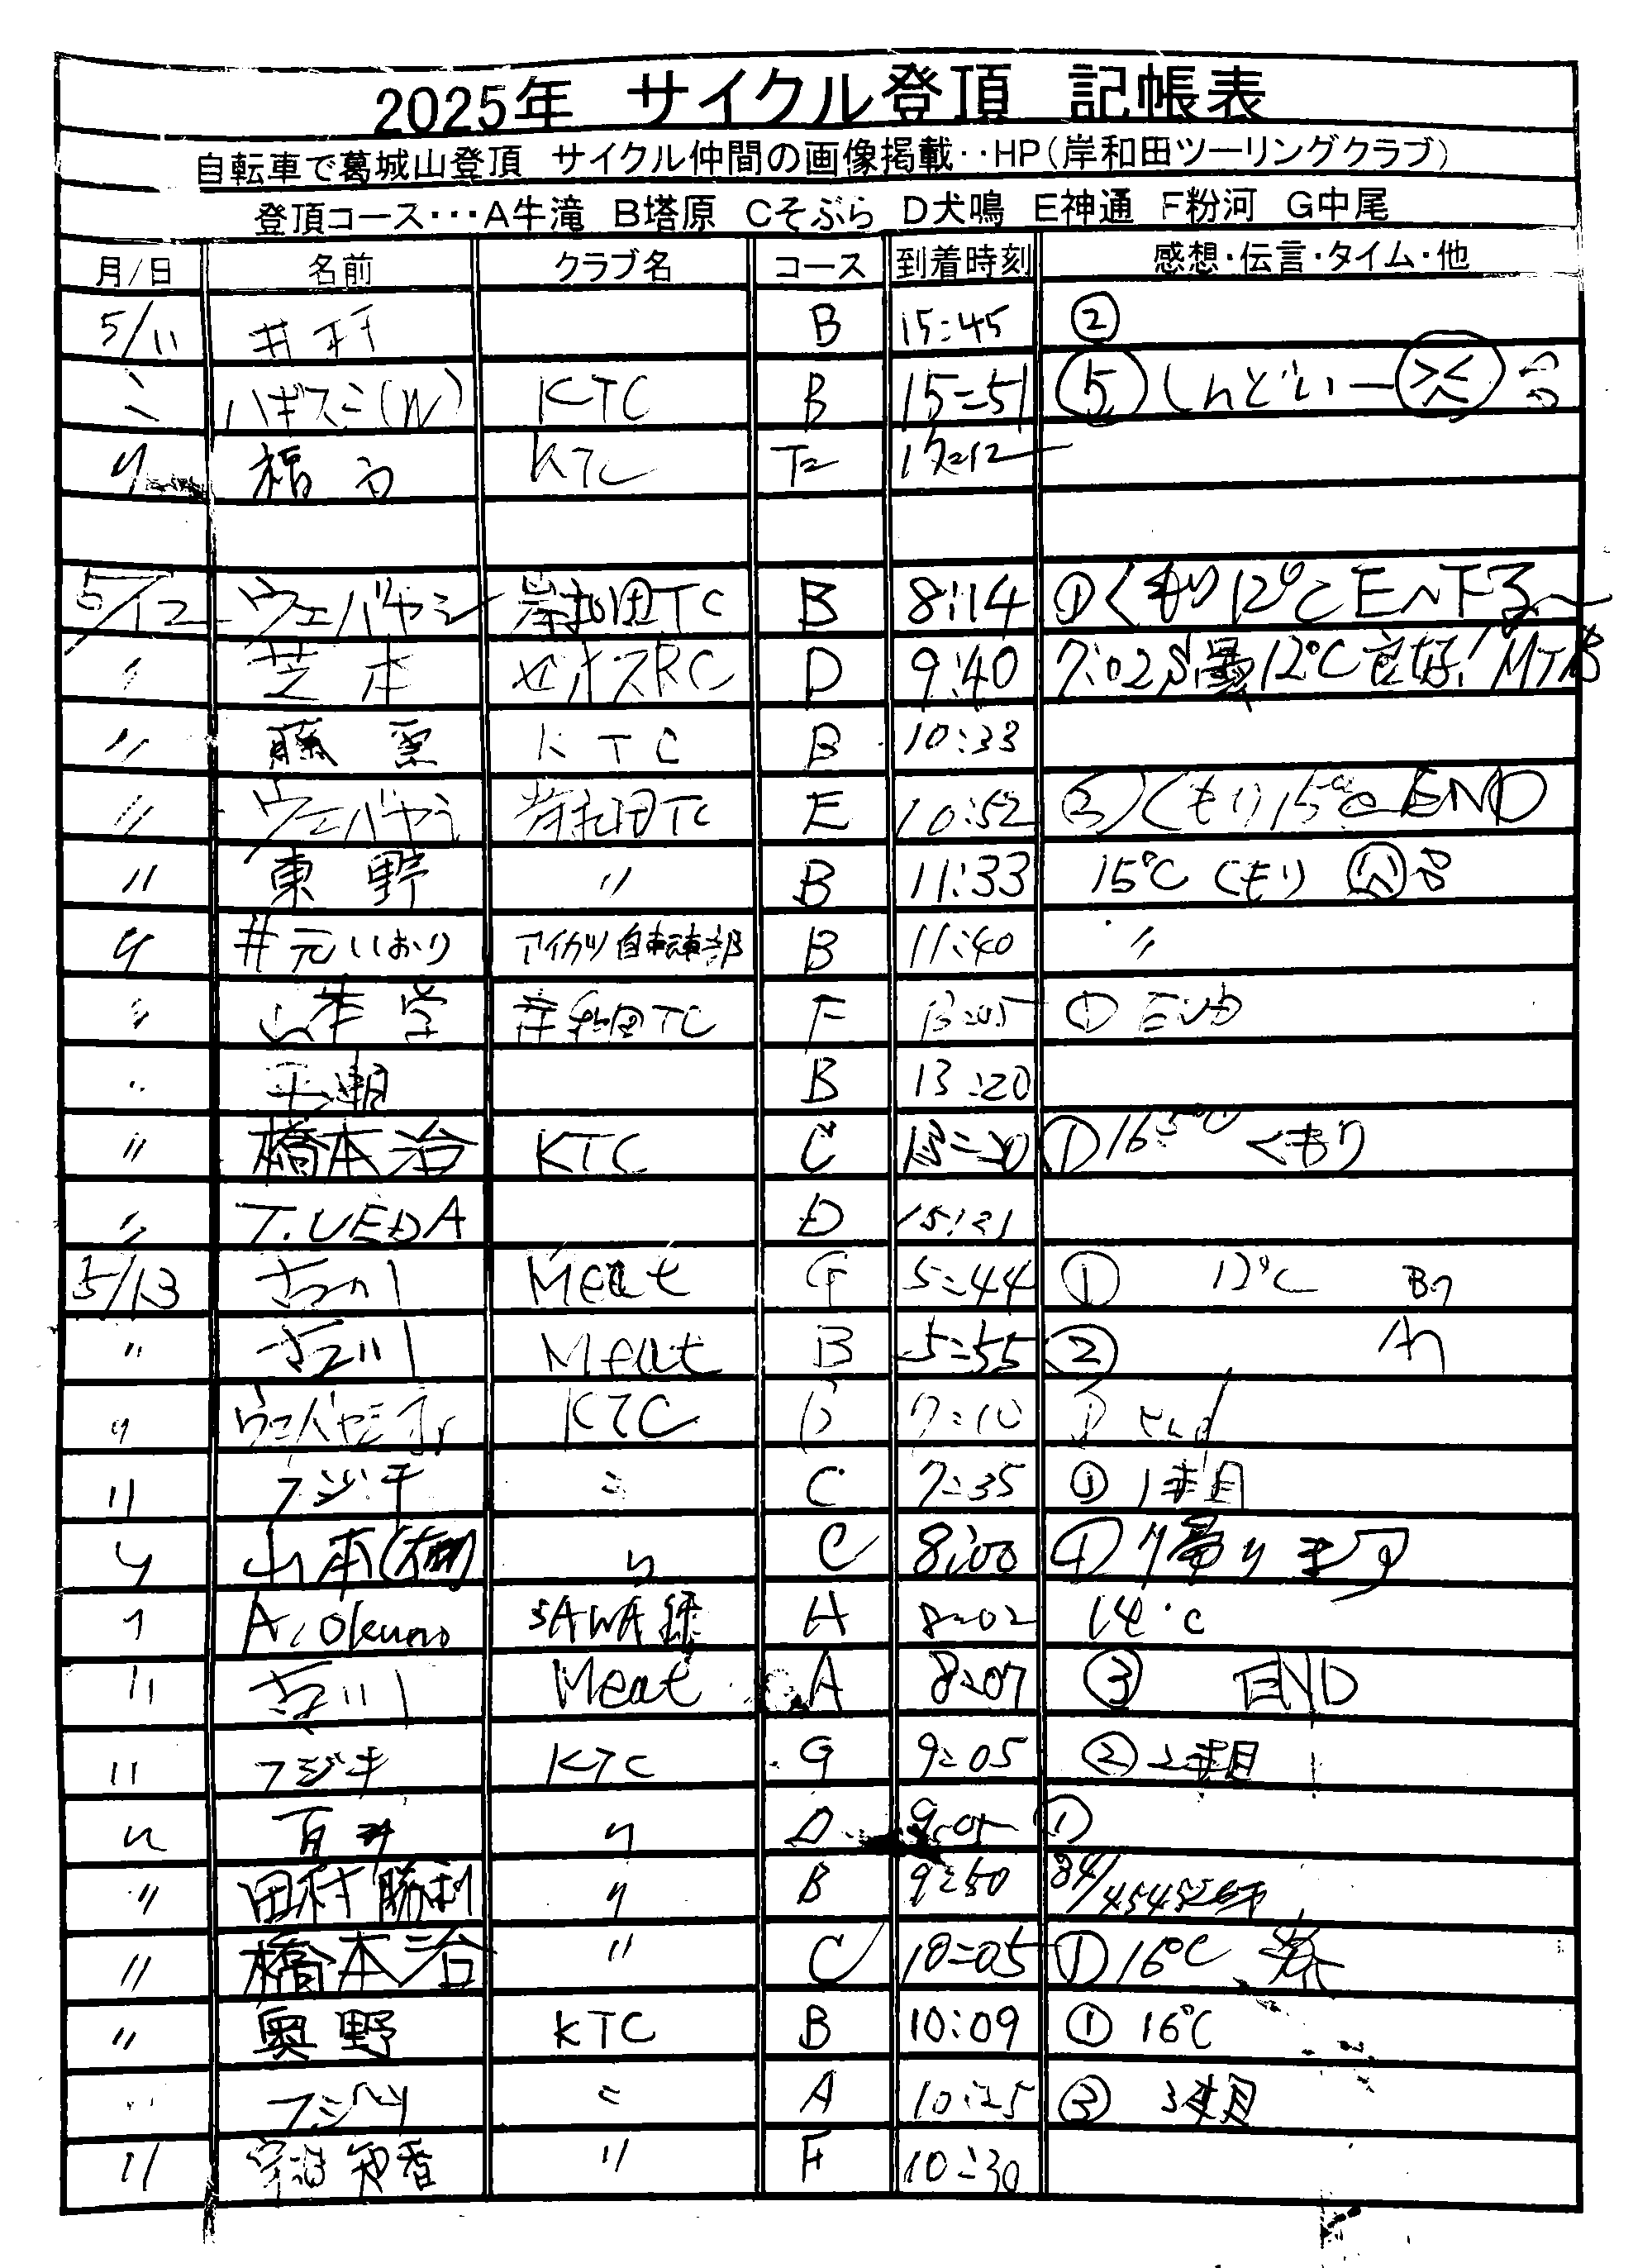 2025年 サイクル登頂 記帳表
自転車で葛城山登頂 サイクル仲間の画像掲載‥HP(岸和田ツーリングクラブ)
登頂コース‥‥A牛滝 B塔原 Cそぶら D犬鳴 E神通 F粉河 G中尾
月/日 名前 クラブ名 コース 到着時刻 感想・伝言・タイム・他
5/11 井村 B 15:45 ②
〃 ハギスミ(W) KTC B 15:51 ⑤ しんどいー
〃 KTC
5/12 ウエバヤシ 岸和田TC B 8:14 ① くもり 12℃ Eへ下る〜
〃 芝本 ゼオスRC D 9:40 12℃ 良好! MTB
〃 藤 KTC B 10:33
〃 ウエバヤシ 岸和田TC E 10:52 ② くもり 15℃ END
〃 東野 〃 B 11:33 15℃ くもり
〃 井元いおり アイカツ自転車部 B 11:40 〃
〃 山本 岸和田TC F 13:05 ① END
〃 B 13:20
〃 橋本治 KTC C ① くもり
〃 T.UEDA D 15:21
5/13 古川 Meat G 5:44 ① 12℃ Bへ
〃 古川 Meat B 5:55 ② Aへ
〃 ウエバヤシJr KTC B 7:10 ① End
〃 フジキ 〃 C 7:35 ① 1本目
〃 山本 〃 C 8:00 ① 帰ります
〃 A.Okuno SAWA録 A 8:02 14℃
〃 古川 Meat A 8:07 ③ END
〃 フジキ KTC G 9:05 ② 2本目
〃 百井 〃 D 9:05 ①
〃 田村勝利 〃 B 9:50 84/454
〃 橋本治 〃 C 10:05 ① 16℃
〃 奥野 KTC B 10:09 ① 16℃
〃 フジキ 〃 A 10:25 ③ 3本目
〃 知香 〃 F 10:30